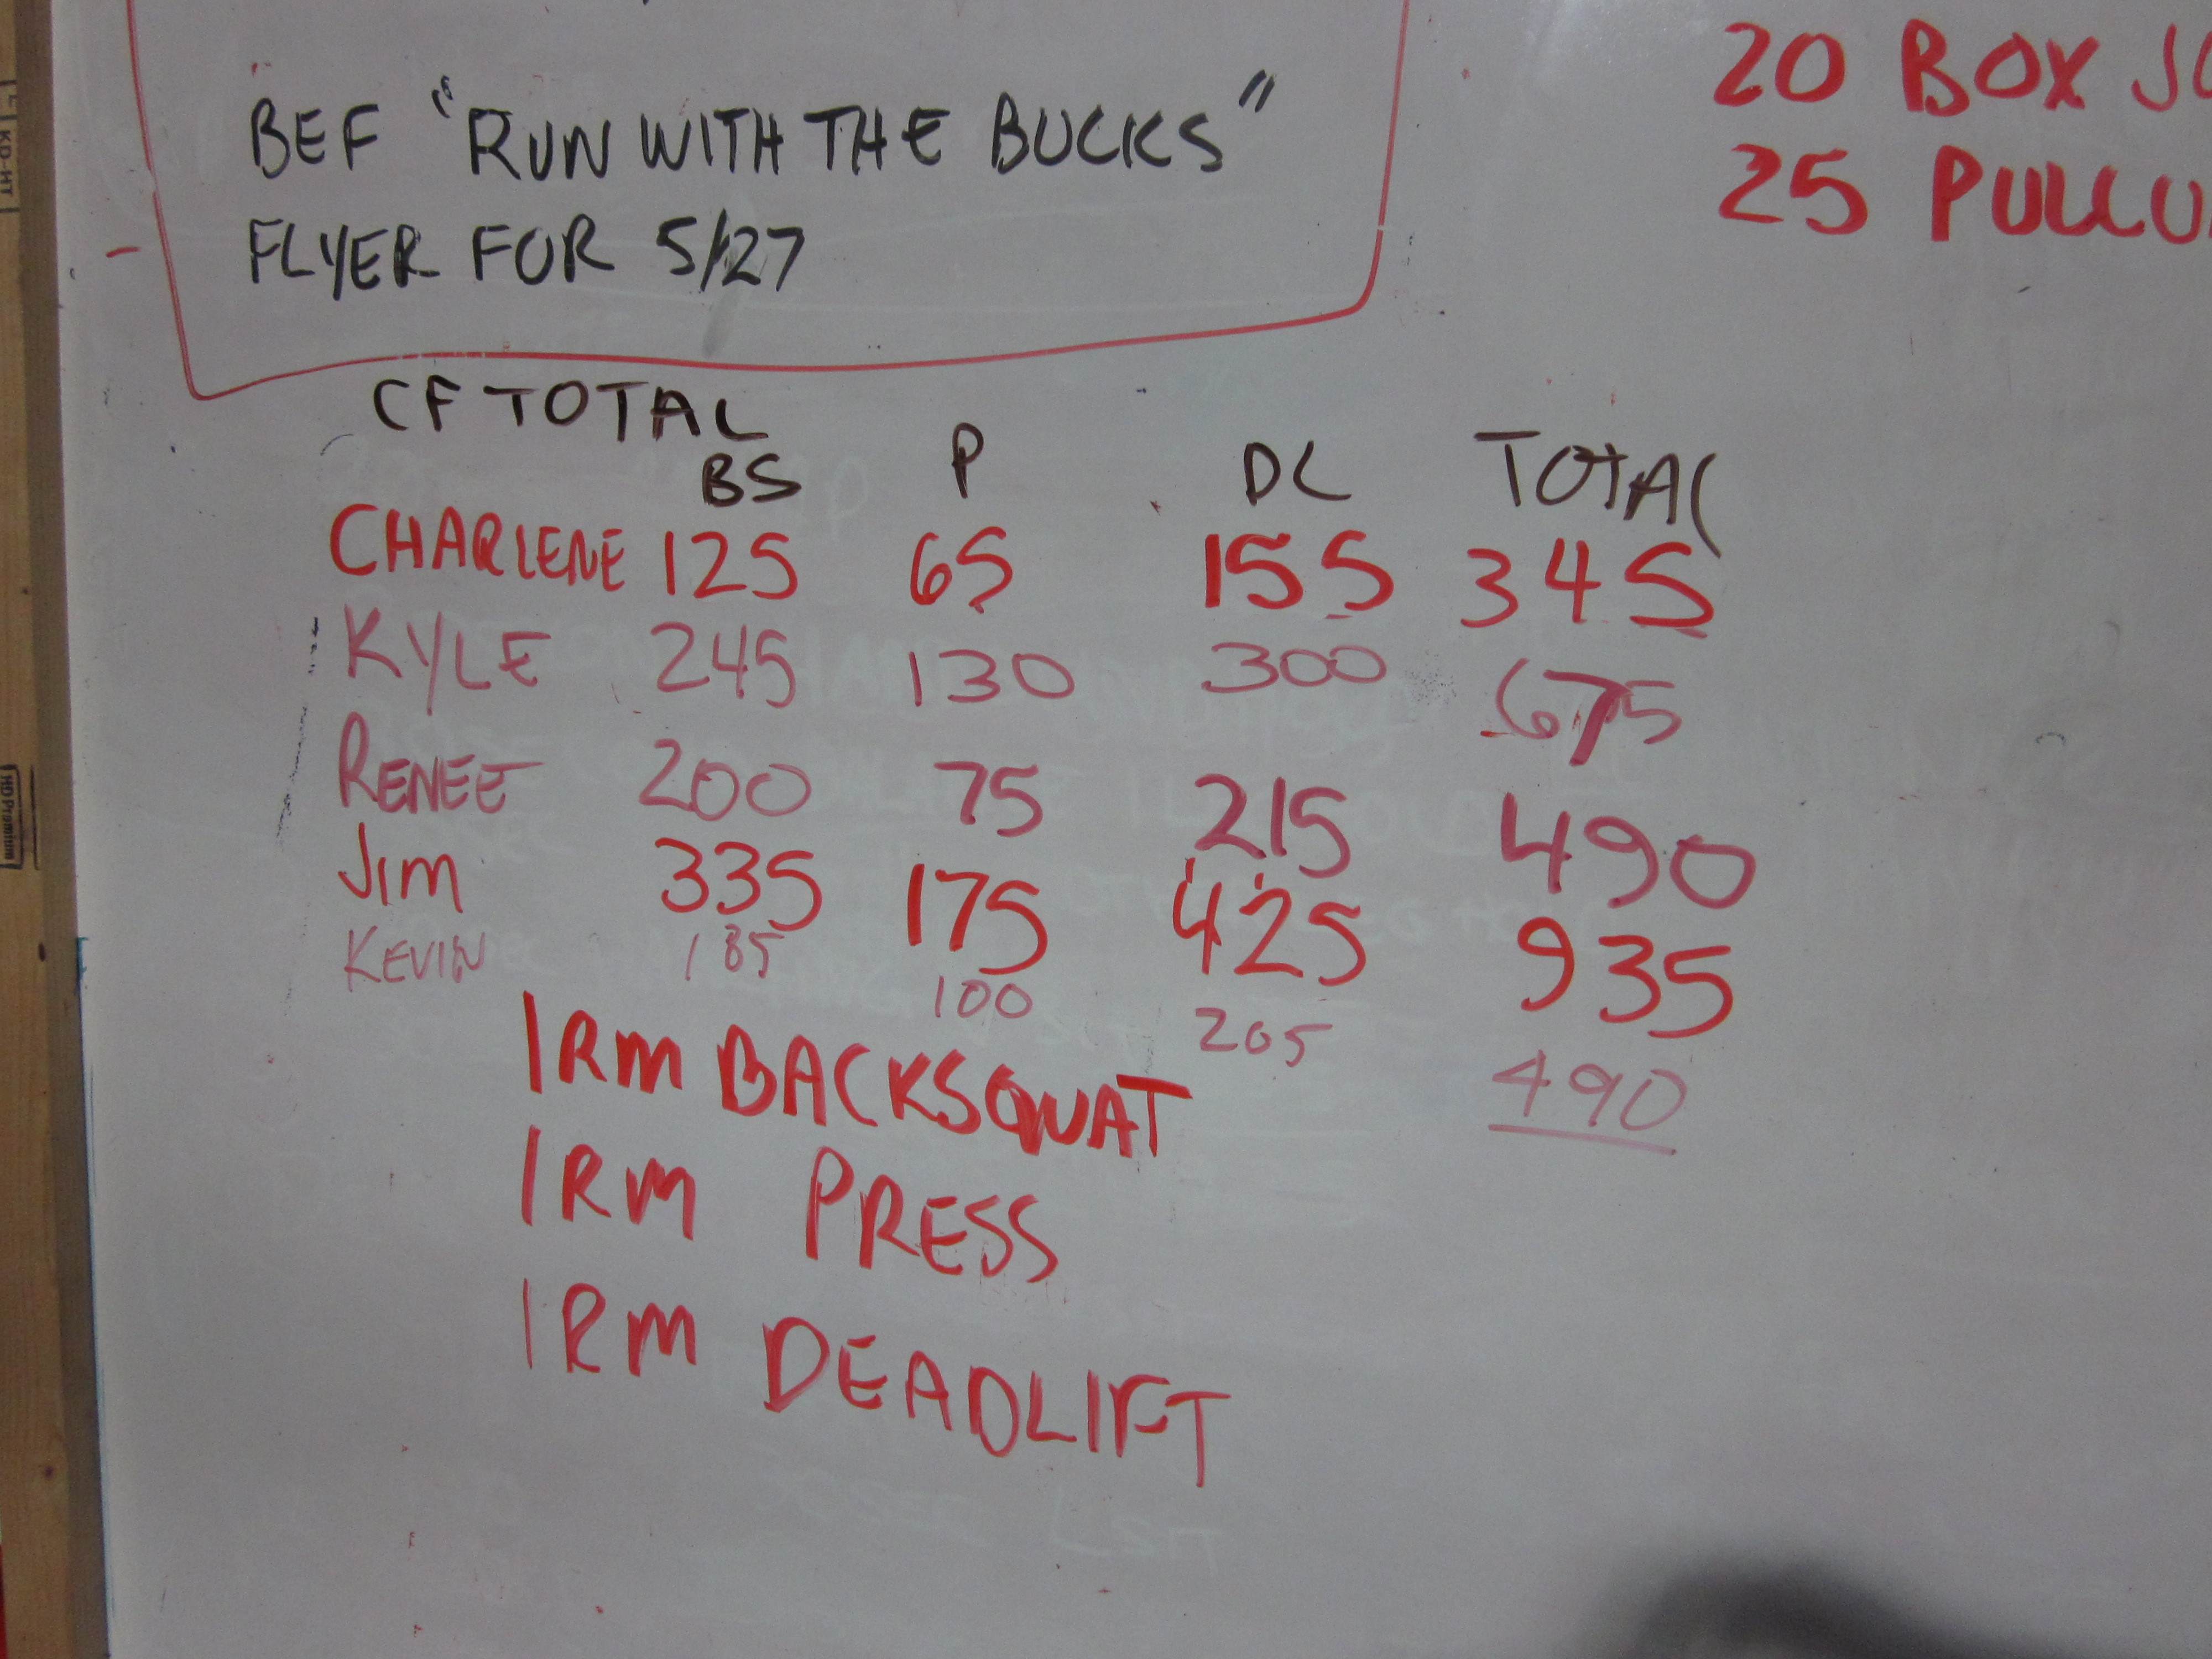 BEF "RUN WITH THE BUCKS"
FLYER FOR 5/27
20 BOX
25
CF TOTAL
BS P DL TOTAL
CHARLENE 125 65 155 345
KYLE 245 130 300 675
RENEE 200 75 215 490
JIM 335 175 425 935
KEVIN 185 100 205 490
1RM BACKSQUAT
1RM PRESS
1RM DEADLIFT
KD-HT
HDPremium